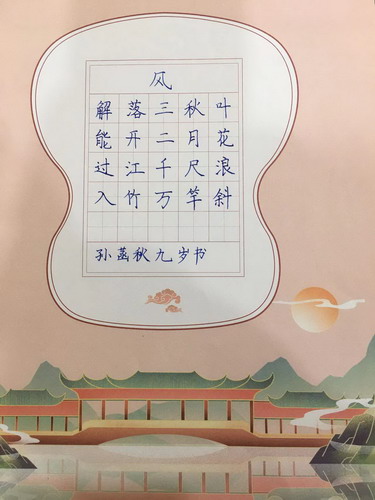 风
解落三秋叶
能开二月花
过江千尺浪
入竹万竿斜
孙菡秋九岁书